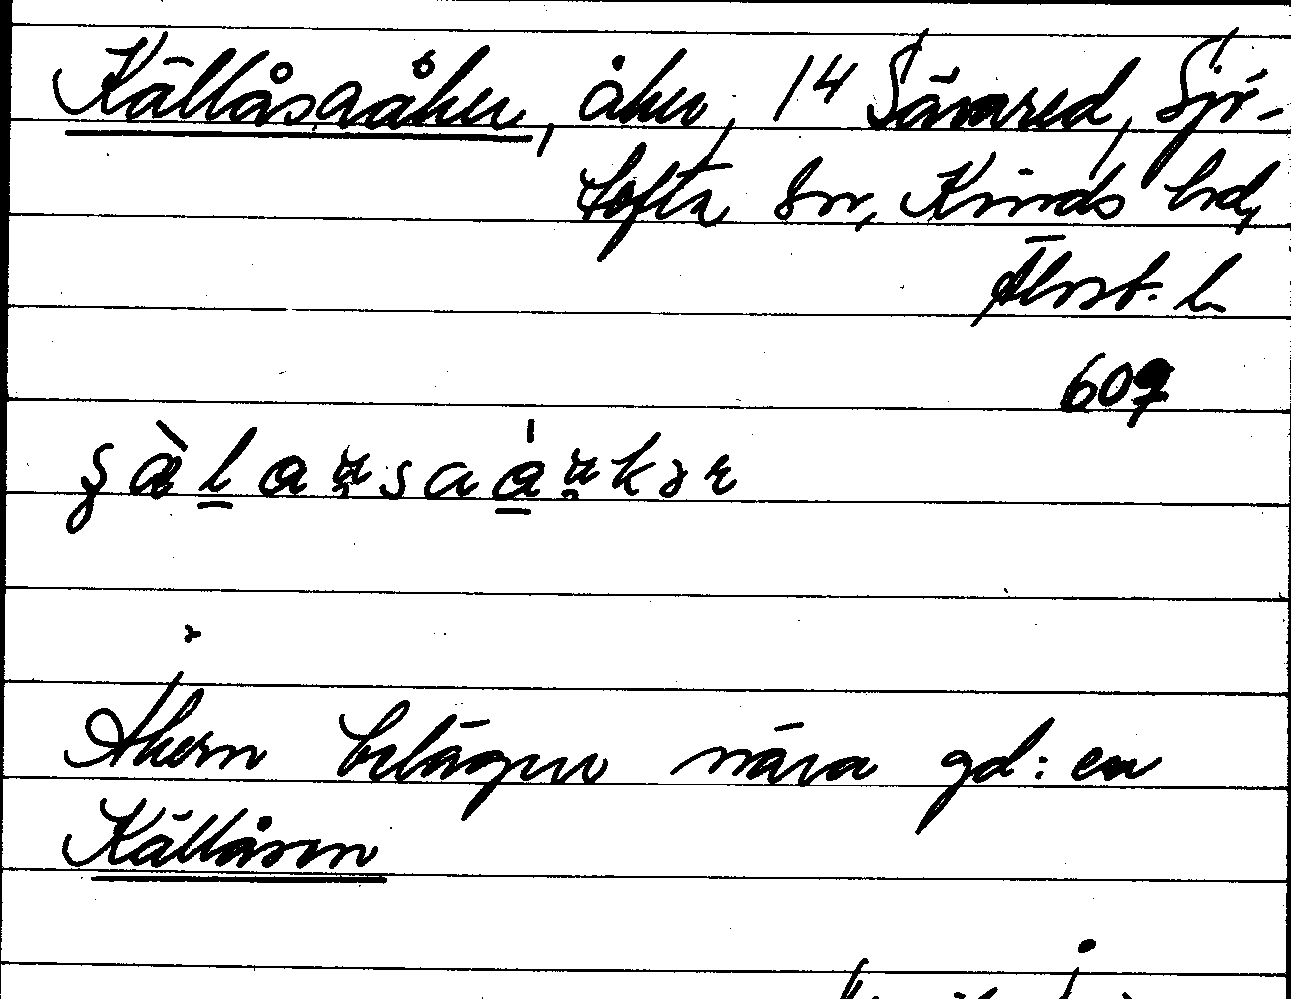 Källåsaåker, åker, 14 Sävared, Sjö-
tofta sn, Kinds hd,
Älvsb. l.
609
Åkern belägen nära gd:en
Källåsen